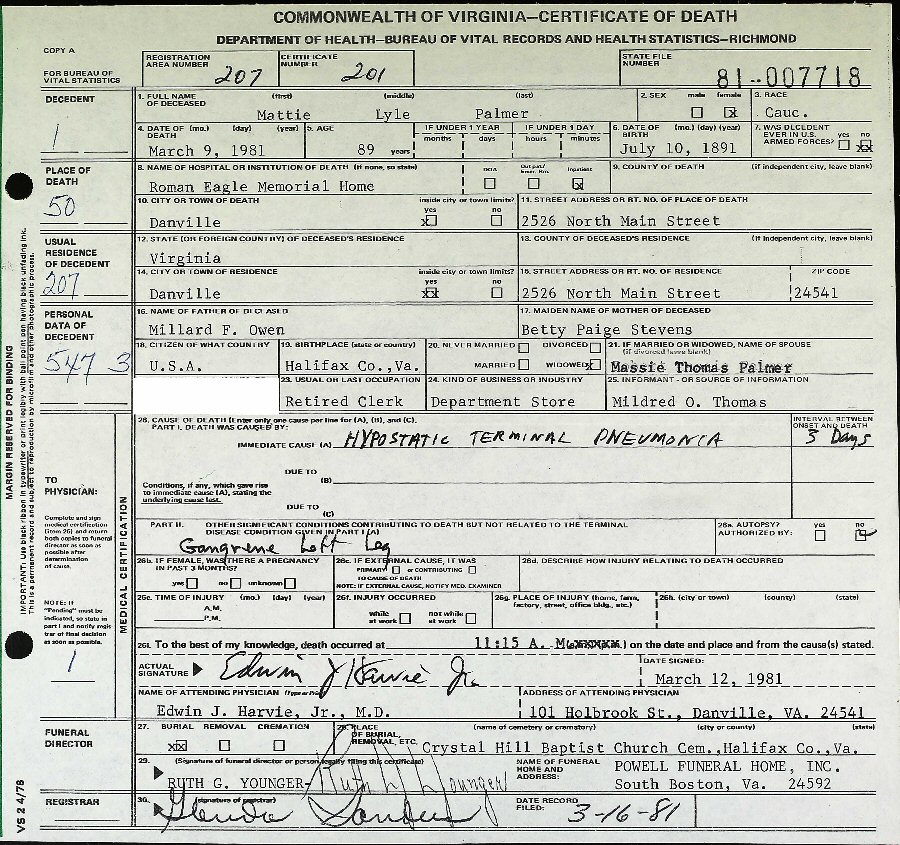 COMMONWEALTH OF VIRGINIA—CERTIFICATE OF DEATH
DEPARTMENT OF HEALTH—BUREAU OF VITAL RECORDS AND HEALTH STATISTICS—RICHMOND
COPY A
FOR BUREAU OF VITAL STATISTICS
REGISTRATION AREA NUMBER 207
CERTIFICATE NUMBER 201
STATE FILE NUMBER 81-007718
DECEDENT
1
1. FULL NAME OF DECEASED (first) (middle) (last)
Mattie Lyle Palmer
2. SEX male female x
3. RACE
Cauc.
4. DATE OF DEATH (mo.) (day) (year)
March 9, 1981
5. AGE
89 years
IF UNDER 1 YEAR
months days
IF UNDER 1 DAY
hours minutes
6. DATE OF BIRTH (mo.) (day) (year)
July 10, 1891
7. WAS DECEDENT EVER IN U.S. ARMED FORCES? yes no xx
PLACE OF DEATH
50
8. NAME OF HOSPITAL OR INSTITUTION OF DEATH (If none, so state)
Roman Eagle Memorial Home
DOA Inpatient x
9. COUNTY OF DEATH (if independent city, leave blank)
10. CITY OR TOWN OF DEATH
Danville
inside city or town limits?
yes x no
11. STREET ADDRESS OR RT. NO. OF PLACE OF DEATH
2526 North Main Street
USUAL RESIDENCE OF DECEDENT
207
12. STATE (OR FOREIGN COUNTRY) OF DECEASED'S RESIDENCE
Virginia
13. COUNTY OF DECEASED'S RESIDENCE (if independent city, leave blank)
14. CITY OR TOWN OF RESIDENCE
Danville
inside city or town limits?
yes xx no
15. STREET ADDRESS OR RT. NO. OF RESIDENCE
2526 North Main Street
ZIP CODE
24541
PERSONAL DATA OF DECEDENT
547 3
16. NAME OF FATHER OF DECEASED
Millard F. Owen
17. MAIDEN NAME OF MOTHER OF DECEASED
Betty Paige Stevens
18. CITIZEN OF WHAT COUNTRY
U.S.A.
19. BIRTHPLACE (state or country)
Halifax Co.,Va.
20. NEVER MARRIED DIVORCED
MARRIED WIDOWED x
21. IF MARRIED OR WIDOWED, NAME OF SPOUSE
(if divorced leave blank)
Massie Thomas Palmer
23. USUAL OR LAST OCCUPATION
Retired Clerk
24. KIND OF BUSINESS OR INDUSTRY
Department Store
25. INFORMANT - OR SOURCE OF INFORMATION
Mildred O. Thomas
MARGIN RESERVED FOR BINDING
IMPORTANT: Use black ribbon in typewriter or print legibly with ball point pen having black unfading ink.
This is a permanent record and subject to reproduction by microfilm and other photographic process.
TO PHYSICIAN:
Complete and sign medical certification (item 26) and return both copies to funeral director as soon as possible after determination of cause.
NOTE: If "Pending" must be indicated, so state in part I and notify registrar of final decision as soon as possible.
1
MEDICAL CERTIFICATION
26. CAUSE OF DEATH (Enter only one cause per line for (A), (B), and (C).
PART I. DEATH WAS CAUSED BY:
IMMEDIATE CAUSE (A) HYPOSTATIC TERMINAL PNEUMONIA
INTERVAL BETWEEN ONSET AND DEATH
3 Days
DUE TO
(B)
Conditions, if any, which gave rise to immediate cause (A), stating the underlying cause last.
DUE TO
(C)
PART II. OTHER SIGNIFICANT CONDITIONS CONTRIBUTING TO DEATH BUT NOT RELATED TO THE TERMINAL DISEASE CONDITION GIVEN IN PART I(A)
Gangrene Left Leg
26a. AUTOPSY? AUTHORIZED BY: yes no
26b. IF FEMALE, WAS THERE A PREGNANCY IN PAST 3 MONTHS?
yes no unknown
26c. IF EXTERNAL CAUSE, IT WAS
PRIMARY or CONTRIBUTING
TO CAUSE OF DEATH
NOTE: IF EXTERNAL CAUSE, NOTIFY MED. EXAMINER
26d. DESCRIBE HOW INJURY RELATING TO DEATH OCCURRED
26e. TIME OF INJURY (mo.) (day) (year)
A.M.
P.M.
26f. INJURY OCCURRED
while at work not while at work
26g. PLACE OF INJURY (home, farm, factory, street, office bldg., etc.)
26h. (city or town) (county) (state)
26i. To the best of my knowledge, death occurred at 11:15 A. M. on the date and place and from the cause(s) stated.
ACTUAL SIGNATURE Edwin J Harvie Jr.
DATE SIGNED:
March 12, 1981
NAME OF ATTENDING PHYSICIAN
Edwin J. Harvie, Jr., M.D.
ADDRESS OF ATTENDING PHYSICIAN
101 Holbrook St., Danville, VA. 24541
FUNERAL DIRECTOR
27. BURIAL REMOVAL CREMATION
xx
28. PLACE OF BURIAL, REMOVAL, ETC. (name of cemetery or crematory) (city or county) (state)
Crystal Hill Baptist Church Cem.,Halifax Co.,Va.
29. (Signature of funeral director or person legally filing this certificate)
RUTH G. YOUNGER- Ruth G. Younger
NAME OF FUNERAL HOME AND ADDRESS:
POWELL FUNERAL HOME, INC.
South Boston, Va. 24592
REGISTRAR
30. (signature of registrar)
Glenda Sanders
DATE RECORD FILED: 3-16-81
VS 2 4/78